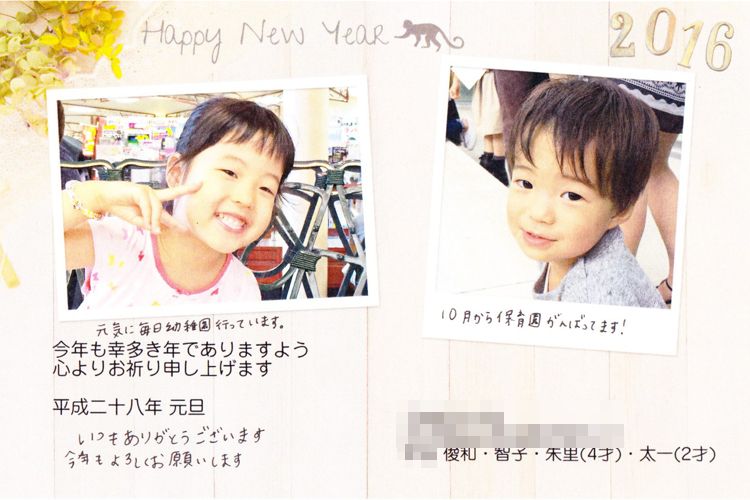 Happy New Year
2016
元気に毎日幼稚園行っています。
10月から保育園がんばってます!
今年も幸多き年でありますよう
心よりお祈り申し上げます
平成二十八年 元旦
いつもありがとうございます
今年もよろしくお願いします
俊和・智子・朱里(4才)・太一(2才)